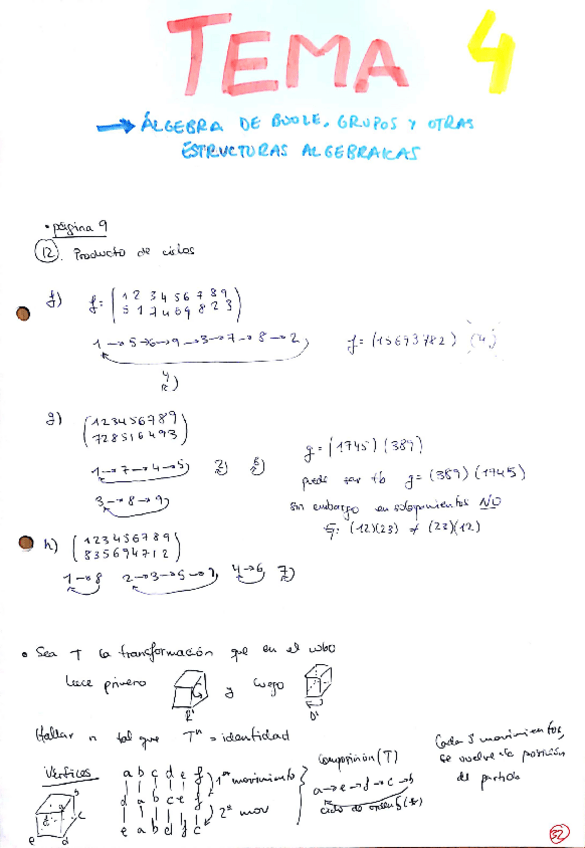 TEMA 4
→ ÁLGEBRA DE BOOLE, GRUPOS Y OTRAS
ESTRUCTURAS ALGEBRAICAS
• página 9
12. Producto de ciclos
f) f = (1 2 3 4 5 6 7 8 9
5 1 7 4 6 9 8 2 3)
1→5→6→9→3→7→8→2
f = (15693782) (4)
4)
g) (1 2 3 4 5 6 7 8 9
7 2 8 5 1 6 4 9 3)
1→7→4→5) 2)
3→8→9)
g = (1745)(389)
puede ser tb g = (389)(1745)
sin embargo en NO
(12)(23) ≠ (23)(12)
h) (1 2 3 4 5 6 7 8 9
8 3 5 6 9 4 7 1 2)
1→8 2→3→5→9 4→6 7)
• Sea T la transformación que en el cubo
hace primero R' y luego D'
Hallar n tal que Tⁿ = identidad
Vértices
a b c d e f
d a b c e f
e a b d f c
1er movimiento
2º mov
Composición (T)
a→e→f→c→b
ciclo de orden 5
Cada 5 movimientos,
se vuelve a la posición
de partida
b
c
d
e
32